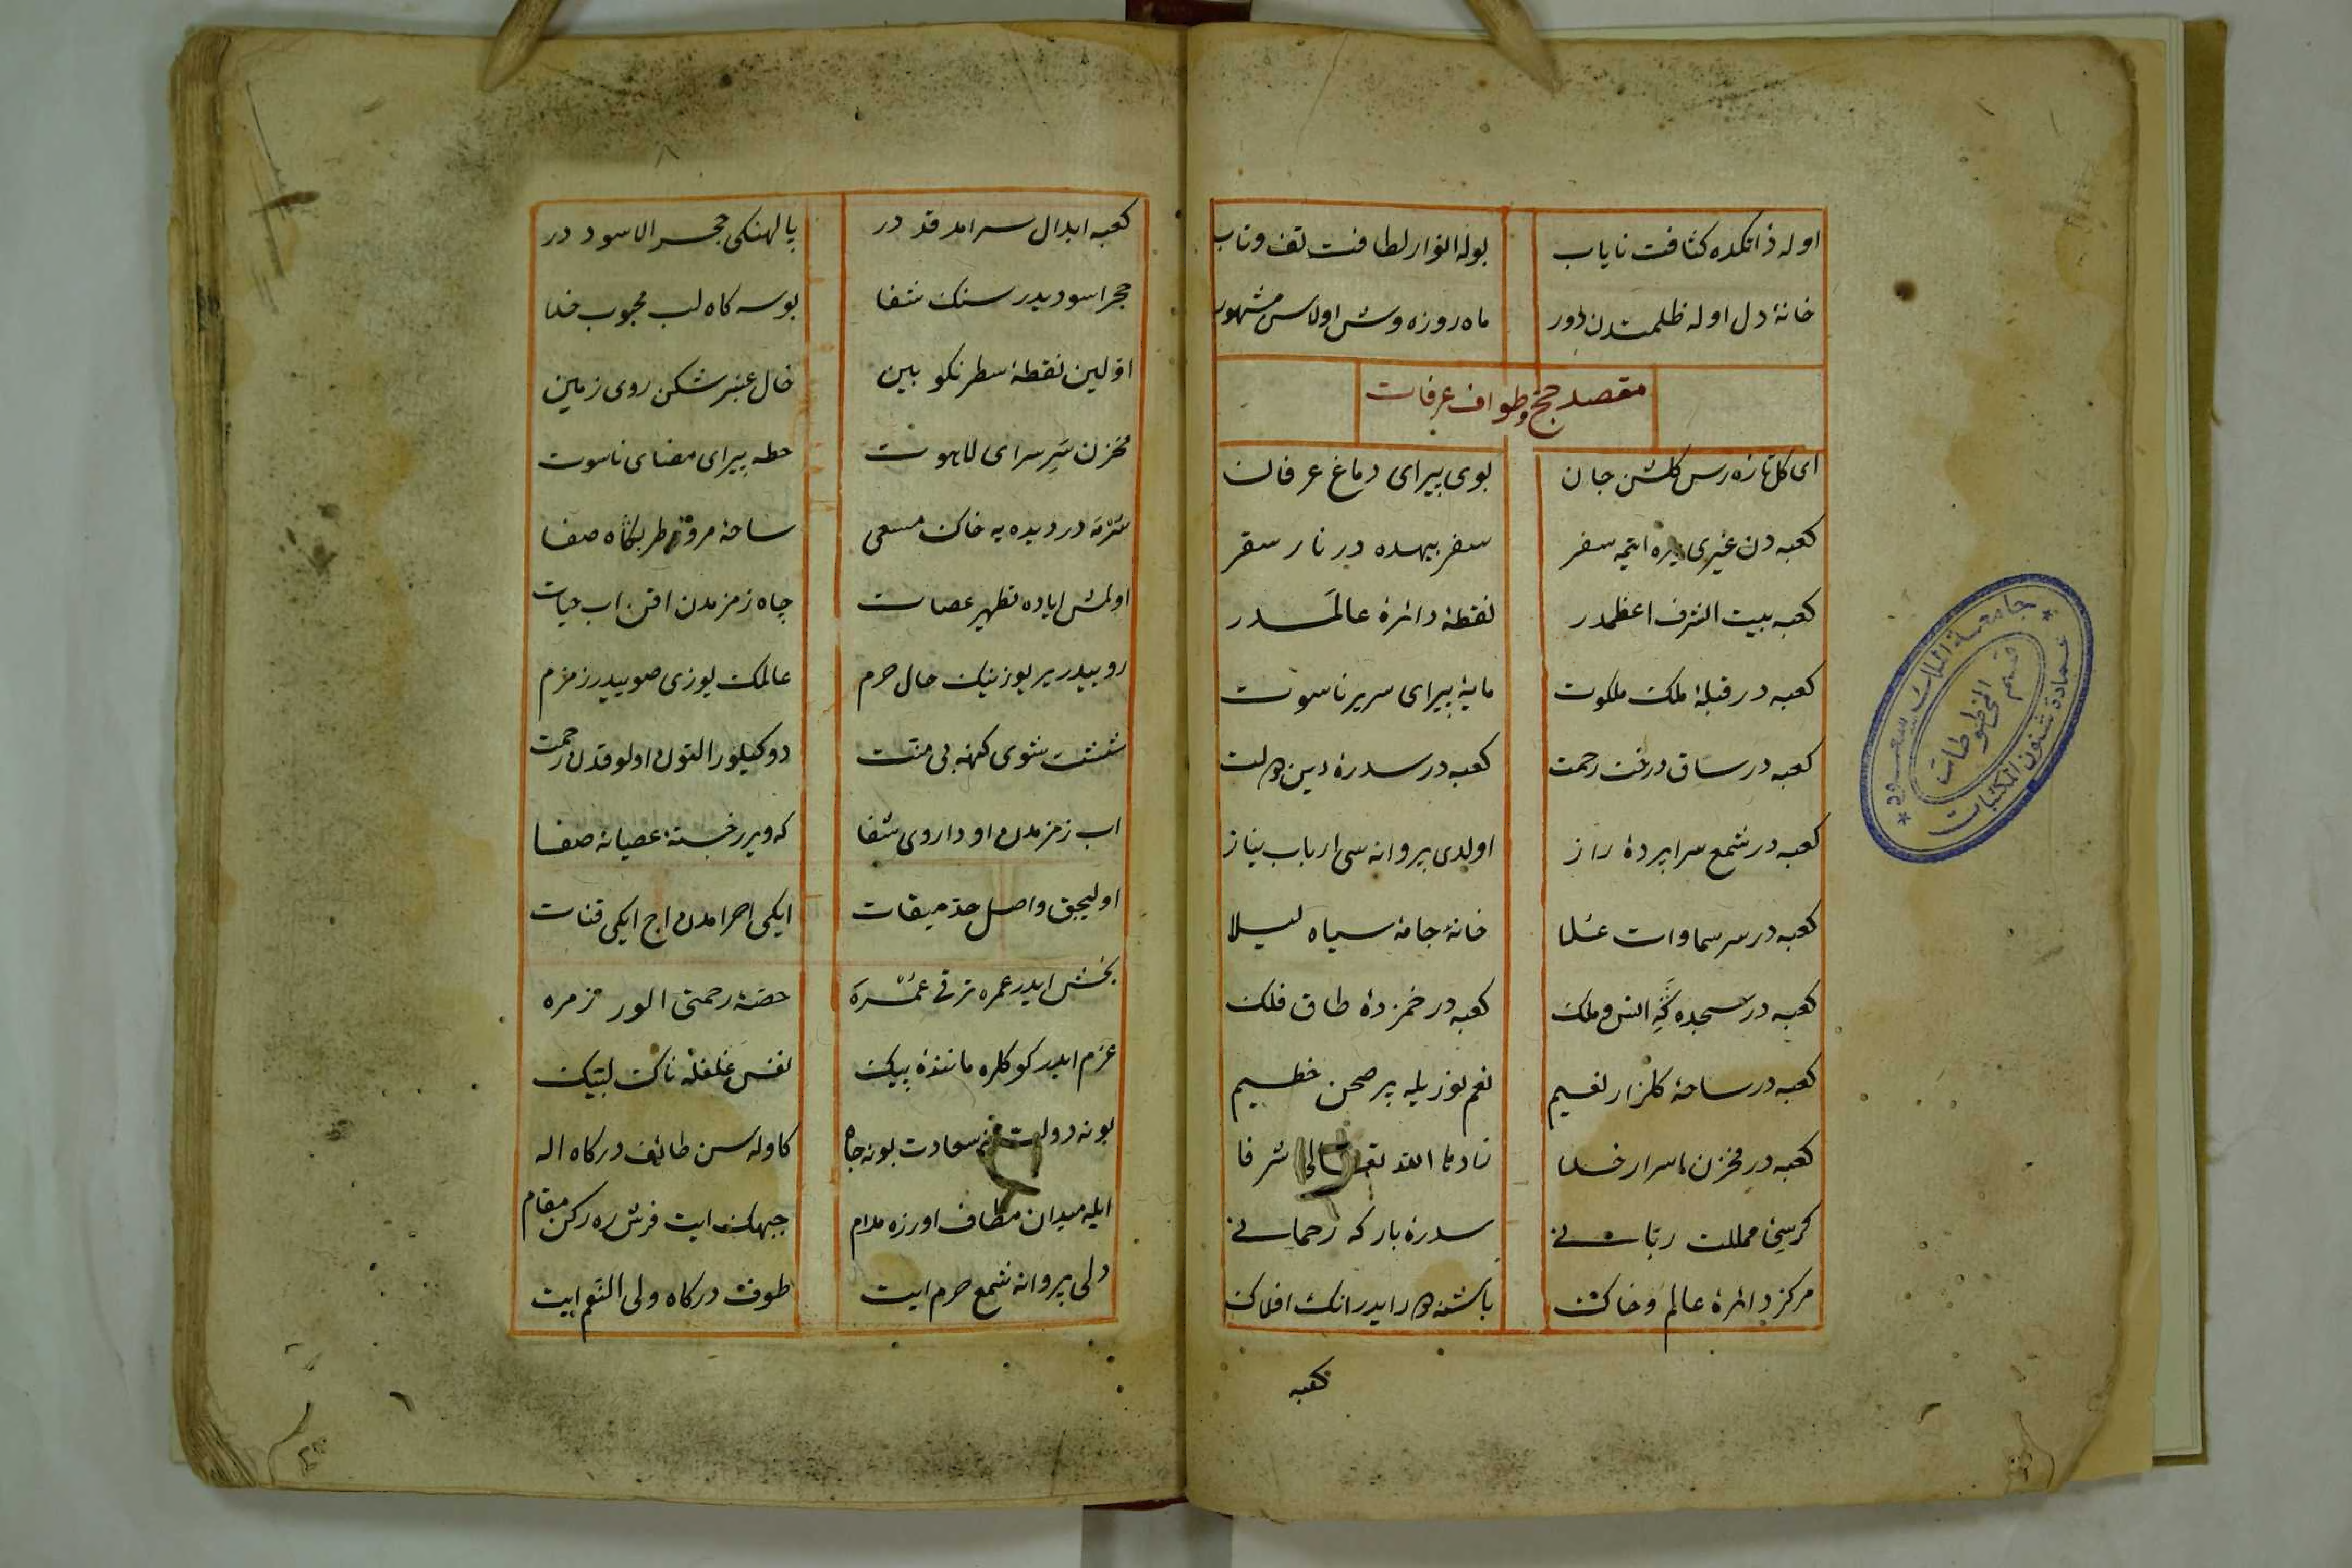 اوله ذاتكده كثافت ناياب بوله انوار لطافت تف وتاب
خانۀ دل اوله ظلمتدن دور ماه روزه وش اولاس مشهور
مقصد حج وطواف عرفات
اى كل تازه رس كلشن جان بوى پيراى دماغ عرفان
كعبه دن غيرى يره ايتمه سفر سفر بيهده در نار سقر
كعبه بيت الشرف اعظمدر نقطۀ دائرۀ عالمدر
كعبه در قبلۀ ملك ملكوت مايۀ پيراى سرير ناسوت
كعبه در ساق درخت رحمت كعبه در سدرۀ دين ودولت
كعبه در شمع سراپردۀ راز اولدى پروانه سى ارباب نياز
كعبه در سر سماوات علا خانۀ جامۀ سياه ليلا
كعبه در سجده كه انس وملك كعبه در خمزدۀ طاق فلك
كعبه در ساحۀ كلزار نعيم نعم نوريله پر صحن خطيم
كعبه در مخزن اسرار خدا زادها الله تعالى شرفا
كرسئ مملكت ربانى سدرۀ باركه رحمانى
مركز دائرۀ عالم وخاك باشنه دور ايدر انك افلاك
كعبه
كعبه ابدال سرامد قددر پالهنكى حجر الاسوددر
حجر اسوديدر سنك شفا بوسه كاه لب محبوب خدا
اولين نقطۀ سطر نكو بين خال عنبر شكن روى زمين
مخزن سر سراى لاهوت حطه پيراى مضاى ناسوت
سرمه در ديده يه خاك مسعى ساحۀ مروه طربكاه صفا
اولمش اياده تطهير عصات چاه زمزمدن اقن اب حيات
روييدر ير يوزينك حال حرم عالمك يوزى صوييدر زمزم
شست شوى كنهه بى منت دوكيلور التون اولوقدن رحمت
اب زمزمدن او داروى شفا كه ويرر خستۀ عصيانه صفا
اوليجق واصل حد ميقات ايكى احرامدن اج ايكى قنات
بخش ايدر عمره ترقى عمره حصۀ رحمتى الور زمره
عزم ايدر كوكلره مانندۀ پيك نفس غلغله ناك لبيك
بونه دولت نه سعادت بونه جاه كاوله سن طائف دركاه اله
ايله ميدان مطاف اوزره مدام جبهك ايت فرش ره ركن مقام
دلى پروانه شمع حرم ايت طوف دركاه ولى النعم ايت
جامعة الملك سعود
عمادة شئون المكتبات
قسم المخطوطات